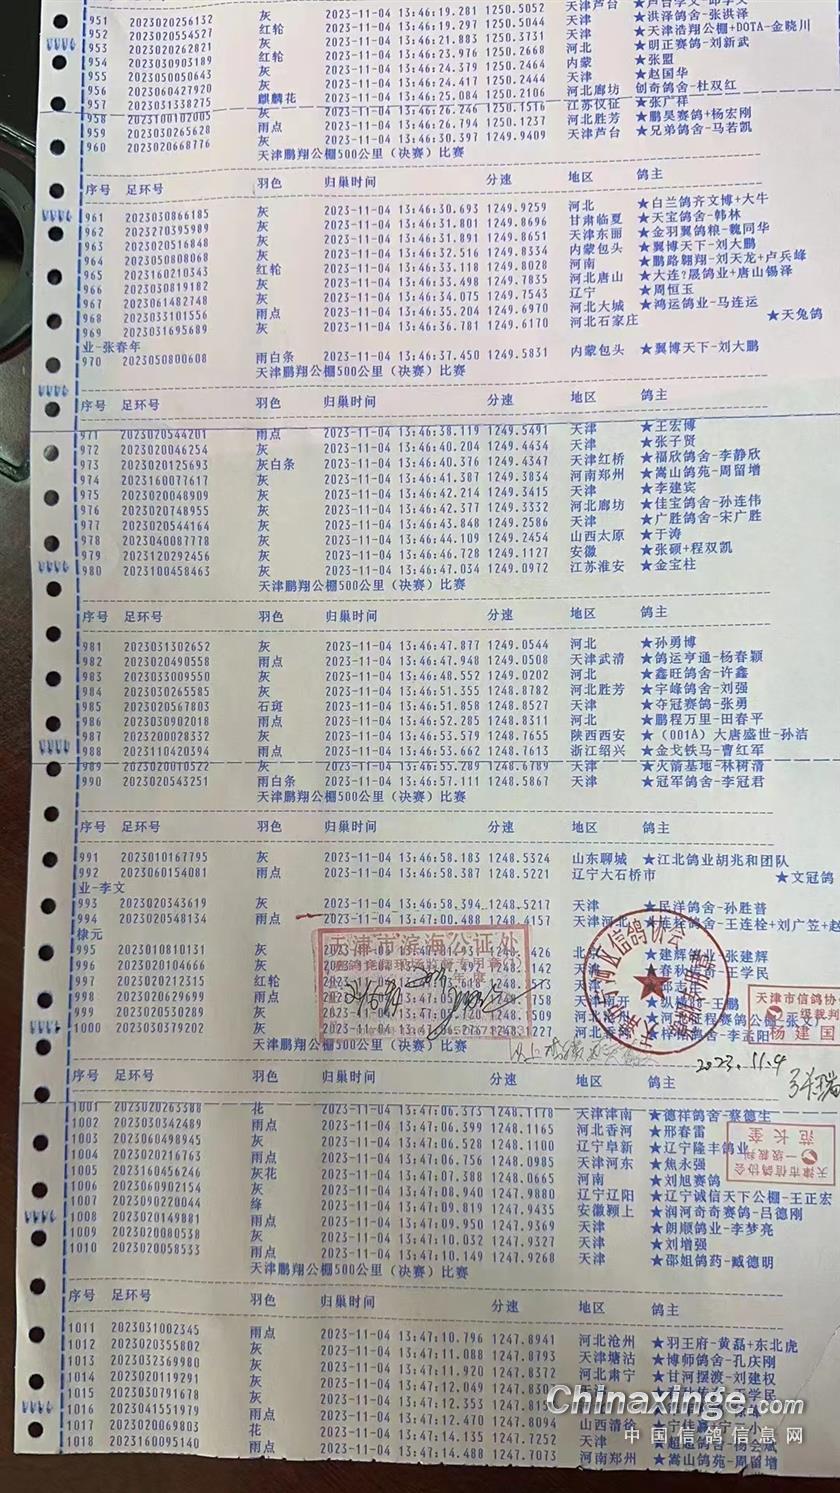 951 2023020256132 灰 2023-11-04 13:46:19.281 1250.5052 天津芦台
952 2023020554527 红轮 2023-11-04 13:46:19.297 1250.5044 天津 ★洪泽鸽舍-张洪泽
953 2023020262821 灰 2023-11-04 13:46:21.883 1250.3731 天津 ★天津浩翔公棚+DOTA-金晓川
954 2023030903189 红轮 2023-11-04 13:46:23.976 1250.2668 河北 ★明正赛鸽-刘新武
955 2023050050643 灰 2023-11-04 13:46:24.379 1250.2464 内蒙 ★张盟
956 2023060427920 灰 2023-11-04 13:46:24.417 1250.2444 天津 ★赵国华
957 2023031338275 麒麟花 2023-11-04 13:46:25.084 1250.2106 河北廊坊 创奇鸽舍-杜双红
958 2023100102005 灰 2023-11-04 13:46:26.246 1250.1516 江苏仪征 ★张广祥
959 2023030265628 雨点 2023-11-04 13:46:26.794 1250.1237 河北胜芳 ★鹏昊赛鸽+杨宏刚
960 2023020668776 灰 2023-11-04 13:46:30.397 1249.9409 天津芦台 ★兄弟鸽舍-马若凯
天津鹏翔公棚500公里（决赛）比赛
序号 足环号 羽色 归巢时间 分速 地区 鸽主
961 2023030866185 灰 2023-11-04 13:46:30.693 1249.9259 河北 ★白兰鸽齐文博+大牛
962 2023270395989 灰 2023-11-04 13:46:31.801 1249.8696 甘肃临夏 ★天宝鸽舍-韩林
963 2023020516848 灰 2023-11-04 13:46:31.891 1249.8651 天津东丽 ★金羽翼鸽粮-魏同华
964 2023050808068 灰 2023-11-04 13:46:32.516 1249.8334 内蒙包头 ★翼博天下-刘大鹏
965 2023160210343 红轮 2023-11-04 13:46:33.118 1249.8028 河南 ★鹏路翱翔-刘天龙+卢兵峰
966 2023030819182 灰 2023-11-04 13:46:33.498 1249.7835 河北唐山 ★大连?晟鸽业+唐山锡泽
967 2023061482748 灰 2023-11-04 13:46:34.075 1249.7543 辽宁 ★周恒玉
968 2023033101556 雨点 2023-11-04 13:46:35.204 1249.6970 河北大城 ★鸿运鸽业-马连运
969 2023031695689 灰 2023-11-04 13:46:36.781 1249.6170 河北石家庄 ★天兔鸽
业-张春年
970 2023050800608 雨白条 2023-11-04 13:46:37.450 1249.5831 内蒙包头 ★翼博天下-刘大鹏
天津鹏翔公棚500公里（决赛）比赛
序号 足环号 羽色 归巢时间 分速 地区 鸽主
971 2023020544201 雨点 2023-11-04 13:46:38.119 1249.5491 天津 ★王宏博
972 2023020046254 灰 2023-11-04 13:46:40.204 1249.4434 天津 ★张子贤
973 2023020125693 灰白条 2023-11-04 13:46:40.376 1249.4347 天津红桥 ★福欣鸽舍-李静欣
974 2023160077617 灰 2023-11-04 13:46:41.387 1249.3834 河南郑州 ★嵩山鸽苑-周留增
975 2023020048909 灰 2023-11-04 13:46:42.214 1249.3415 天津 ★李建宾
976 2023020748955 灰 2023-11-04 13:46:42.377 1249.3332 河北廊坊 ★佳宝鸽舍-孙连伟
977 2023020544164 灰 2023-11-04 13:46:43.848 1249.2586 天津 ★广胜鸽舍-宋广胜
978 2023040087778 灰 2023-11-04 13:46:44.109 1249.2454 山西太原 ★于涛
979 2023120292456 灰 2023-11-04 13:46:46.728 1249.1127 安徽 ★张硕+程双凯
980 2023100458463 灰 2023-11-04 13:46:47.034 1249.0972 江苏淮安 ★金宝柱
天津鹏翔公棚500公里（决赛）比赛
序号 足环号 羽色 归巢时间 分速 地区 鸽主
981 2023031302652 灰 2023-11-04 13:46:47.877 1249.0544 河北 ★孙勇博
982 2023020490558 雨点 2023-11-04 13:46:47.948 1249.0508 天津武清 ★鸽运亨通-杨春颖
983 2023033009550 灰 2023-11-04 13:46:48.552 1249.0202 河北 ★鑫旺鸽舍-许鑫
984 2023030265585 灰 2023-11-04 13:46:51.355 1248.8782 河北胜芳 ★宇峰鸽舍-刘强
985 2023020567803 石斑 2023-11-04 13:46:51.858 1248.8527 天津 ★夺冠赛鸽-张勇
986 2023030902018 雨点 2023-11-04 13:46:52.285 1248.8311 河北 ★鹏程万里-田春平
987 2023200028332 灰 2023-11-04 13:46:53.579 1248.7655 陕西西安 ★（001A）大唐盛世-孙洁
988 2023110420394 雨点 2023-11-04 13:46:53.662 1248.7613 浙江绍兴 ★金戈铁马-曹红军
989 2023020010522 灰 2023-11-04 13:46:55.289 1248.6789 天津 ★火箭基地-林树清
990 2023020543251 雨白条 2023-11-04 13:46:57.111 1248.5867 天津 ★冠军鸽舍-李冠君
天津鹏翔公棚500公里（决赛）比赛
序号 足环号 羽色 归巢时间 分速 地区 鸽主
991 2023010167795 灰 2023-11-04 13:46:58.183 1248.5324 山东聊城 ★江北鸽业胡兆和团队
992 2023060154081 雨点 2023-11-04 13:46:58.387 1248.5221 辽宁大石桥市 ★文冠鸽
业-李文
993 2023020343619 灰 2023-11-04 13:46:58.394 1248.5217 天津 ★民洋鸽舍-孙胜普
994 2023020548134 雨点 2023-11-04 13:47:00.488 1248.4157 天津河北 ★连栓鸽舍-王连栓+刘广笠+赵
棣元
995 2023010810131 灰 ★建辉鸽业-张建辉
996 2023020104666 灰 天津 ★春秋传奇-王学民
997 2023020212315 红轮
998 2023020629699 雨点 天津南开
999 2023020530289 灰
1000 2023030379202 灰
天津鹏翔公棚500公里（决赛）比赛
天津市滨海公证处
天津市信鸽协
一级裁判
杨建国
2023.11.4
序号 足环号 羽色 归巢时间 分速 地区 鸽主
1001 2023020263388 花 2023-11-04 13:47:06.373 1248.1178 天津津南 ★德祥鸽舍-蔡德生
1002 2023030342489 雨点 2023-11-04 13:47:06.399 1248.1165 河北香河 ★邢春雷
1003 2023060498945 灰 2023-11-04 13:47:06.528 1248.1100 辽宁阜新 ★辽宁隆丰鸽业
1004 2023020216763 雨点 2023-11-04 13:47:06.756 1248.0985 天津河东 ★焦永强
1005 2023160456246 灰花 2023-11-04 13:47:07.388 1248.0665 河南 ★刘旭赛鸽
1006 2023060902154 灰 2023-11-04 13:47:08.940 1247.9880 辽宁辽阳 ★辽宁诚信天下公棚-王正宏
1007 2023090220044 绛 2023-11-04 13:47:09.819 1247.9435 安徽颍上 ★润河奇奇赛鸽-吕德刚
1008 2023020149881 雨点 2023-11-04 13:47:09.950 1247.9369 天津 ★朗顺鸽业-李梦亮
1009 2023020080538 灰 2023-11-04 13:47:10.032 1247.9327 天津 ★刘增强
1010 2023020058533 雨点 2023-11-04 13:47:10.149 1247.9268 天津 ★邵姐鸽药-臧德明
天津鹏翔公棚500公里（决赛）比赛
天津市信鸽协会
一级裁判
范长奎
序号 足环号 羽色 归巢时间 分速 地区 鸽主
1011 2023031002345 雨点 2023-11-04 13:47:10.796 1247.8941 河北沧州 ★羽王府-黄磊+东北虎
1012 2023020355802 灰 2023-11-04 13:47:11.088 1247.8793 天津塘沽 ★博师鸽舍-孔庆刚
1013 2023032369980 灰 2023-11-04 13:47:11.920 1247.8372 河北肃宁 ★甘河摆渡-刘建权
1014 2023020119291 灰 2023-11-04 13:47:12.049 1247.830
1015 2023030791678 灰 2023-11-04 13:47:12.353 1247.815
1016 2023041551979 雨点 2023-11-04 13:47:12.470 1247.8094 山西清徐
1017 2023020069803 花 2023-11-04 13:47:14.135 1247.7252 天津
1018 2023160095140 雨点 2023-11-04 13:47:14.488 1247.7073 河南郑州 ★嵩山鸽苑-周留增
Chinaxinge.com
中国信鸽信息网